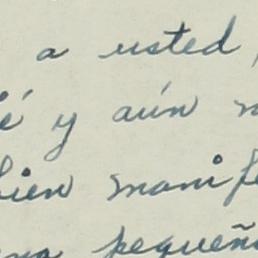 a usted
é y aún
bien manif
pequeñ